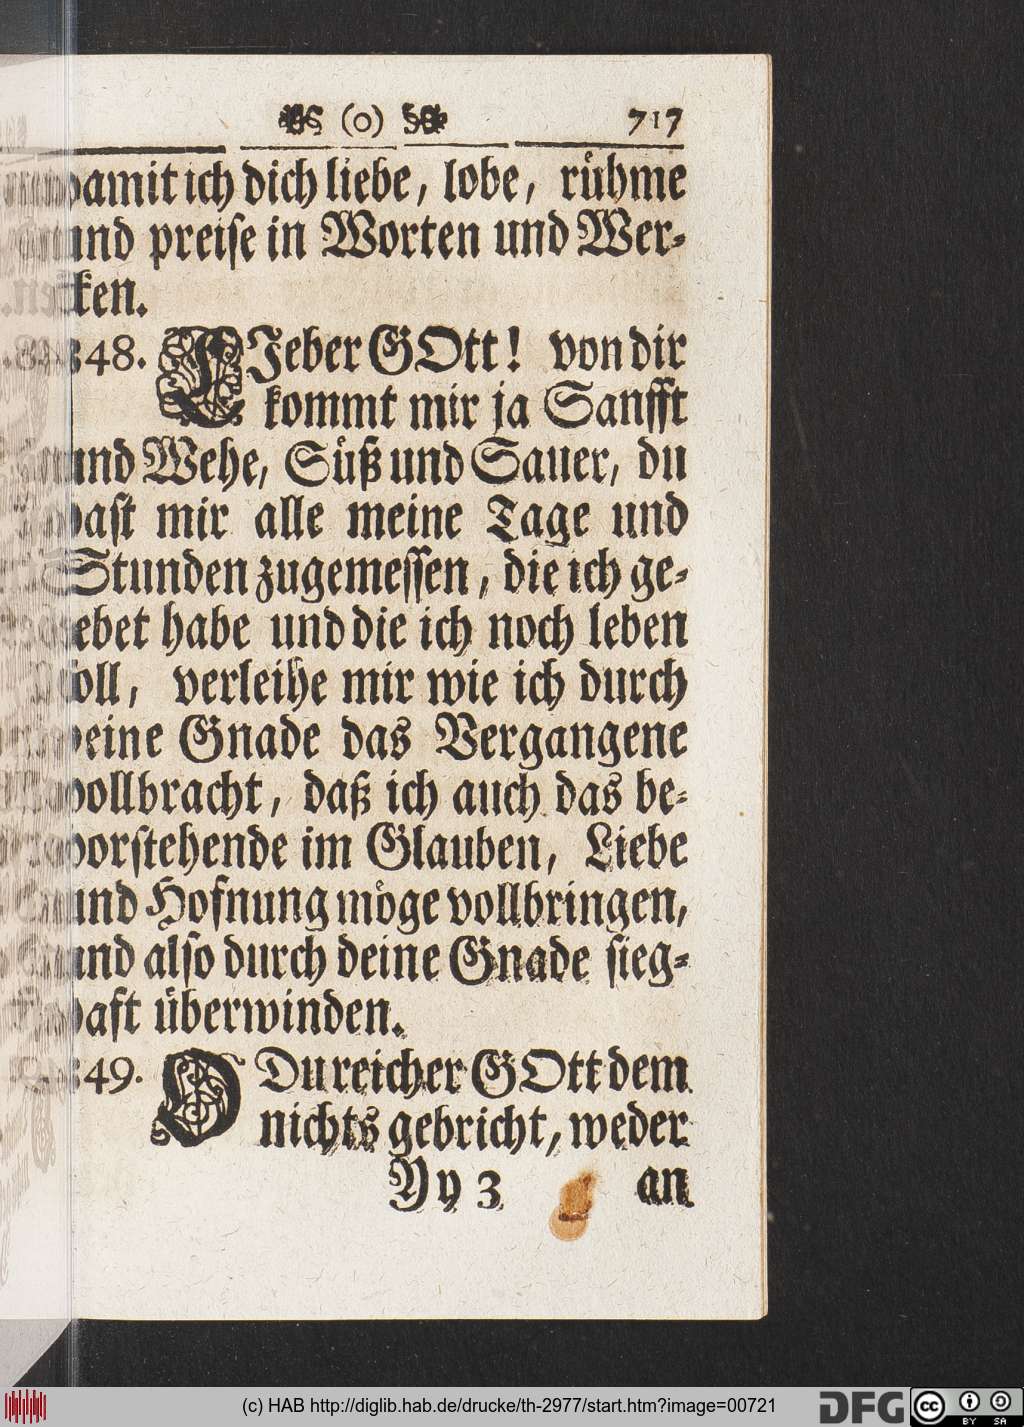 (o) 717
damit ich dich liebe, lobe, rühme
und preise in Worten und Wer-
cken.
848. LIeber GOtt! von dir
kommt mir ja Sanfft
und Wehe, Süß und Sauer, du
hast mir alle meine Tage und
Stunden zugemessen, die ich ge-
lebet habe und die ich noch leben
soll, verleihe mir wie ich durch
deine Gnade das Vergangene
vollbracht, daß ich auch das be-
vorstehende im Glauben, Liebe
und Hofnung möge vollbringen,
und also durch deine Gnade sieg-
haft überwinden.
849. O Du reicher GOtt dem
nichts gebricht, weder
Yy 3 an
(c) HAB http://diglib.hab.de/drucke/th-2977/start.htm?image=00721
DFG
cc BY SA